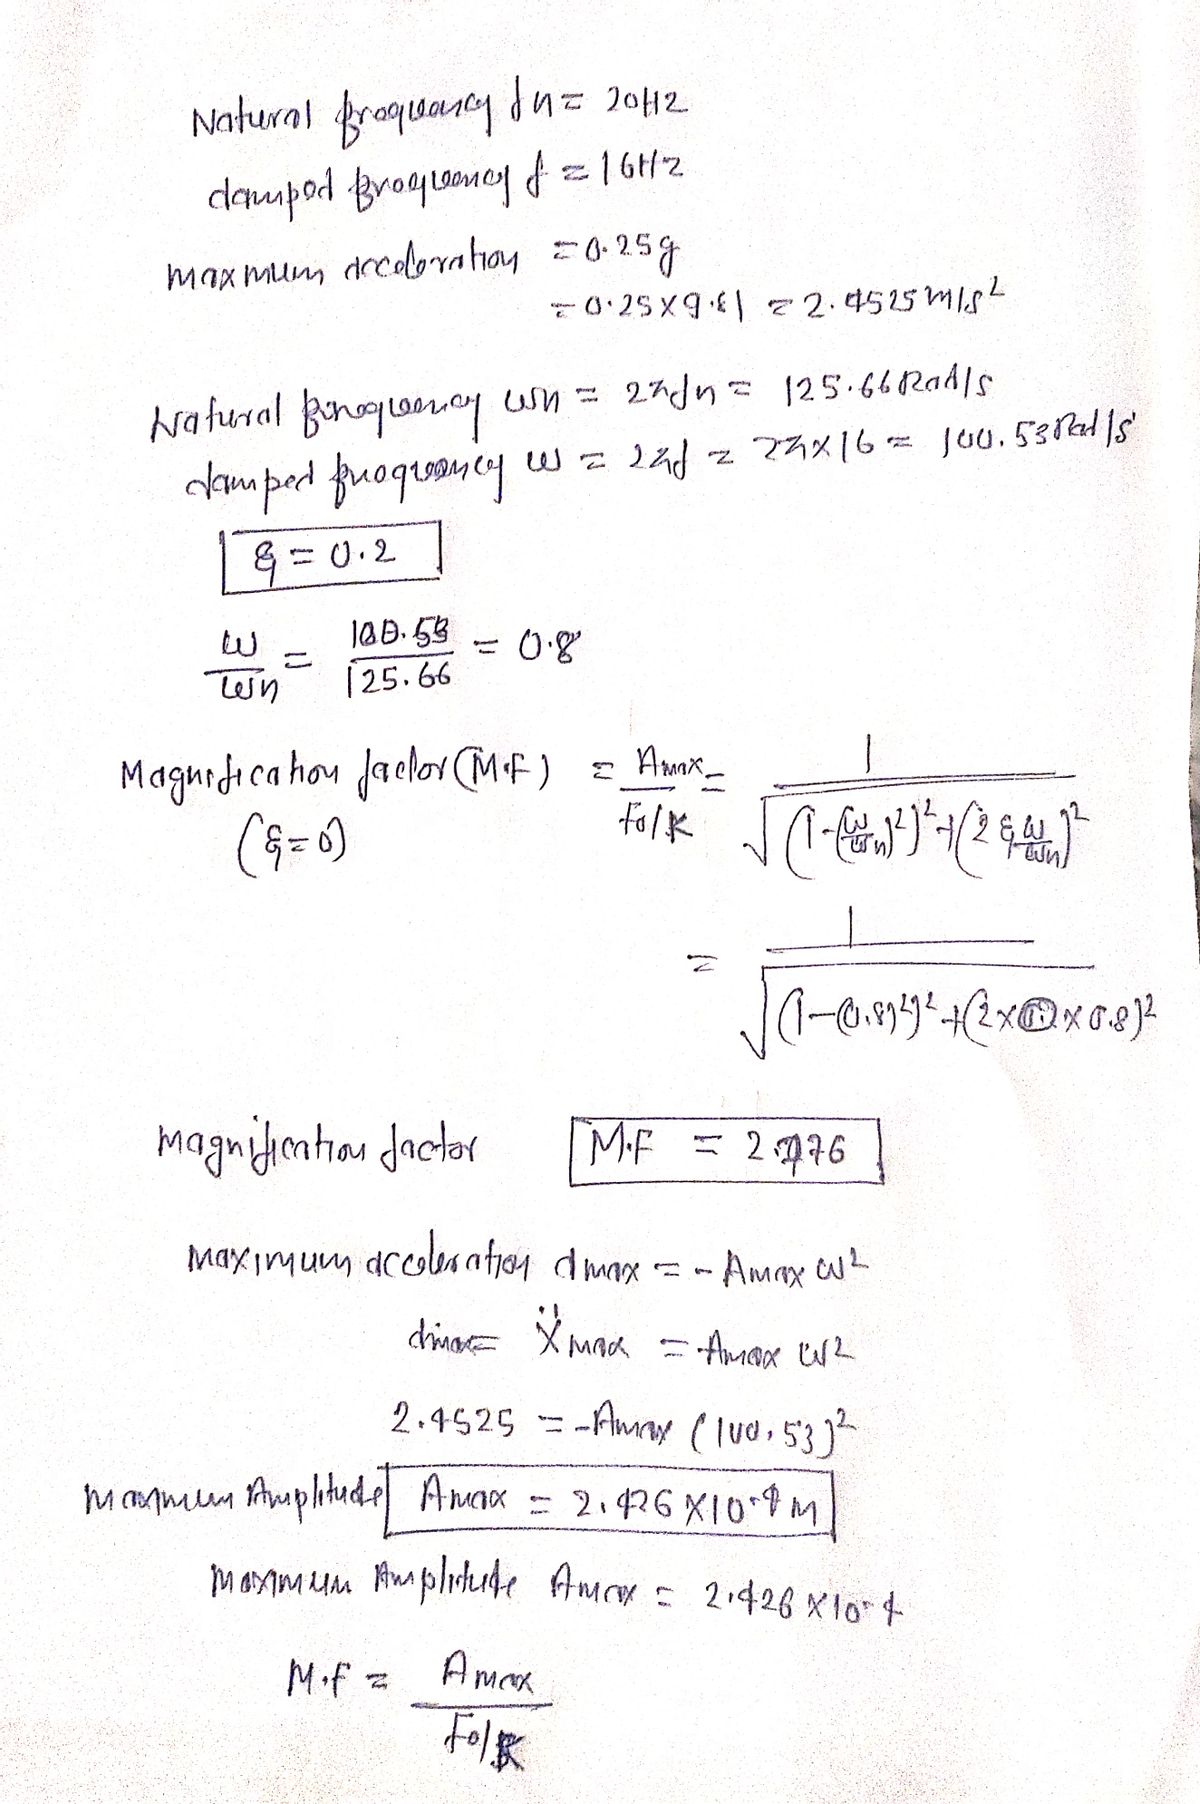 Natural frequency fn = 20Hz
damped frequency f = 16Hz
maxmum acceleration = 0.25g
= 0.25 x 9.81 = 2.4525 m/s²
Natural frequency ωn = 2πfn = 125.66 Rad/s
damped frequency ω = 2πf = 2π x 16 = 100.53 Rad/s
ξ = 0.2
ω/ωn = 100.53/125.66 = 0.8
Magnification factor (M.F) = Amax/(Fo/K) = 1/√((1-(ω/ωn)²)² + (2ξω/ωn)²)
(ξ = 0)
= 1/√((1-(0.8)²)² + (2 x x 0.8)²)
Magnification factor M.F = 2.776
Maximum acceleration amax = - Amax ω²
amax = Ẍmax = -Amax ω²
2.4525 = -Amax (100.53)²
maxmum Amplitude Amax = 2.426 x 10-4 m
maxmum Amplitude Amax = 2.426 x 10-4
M.F = Amax/(Fo/K)